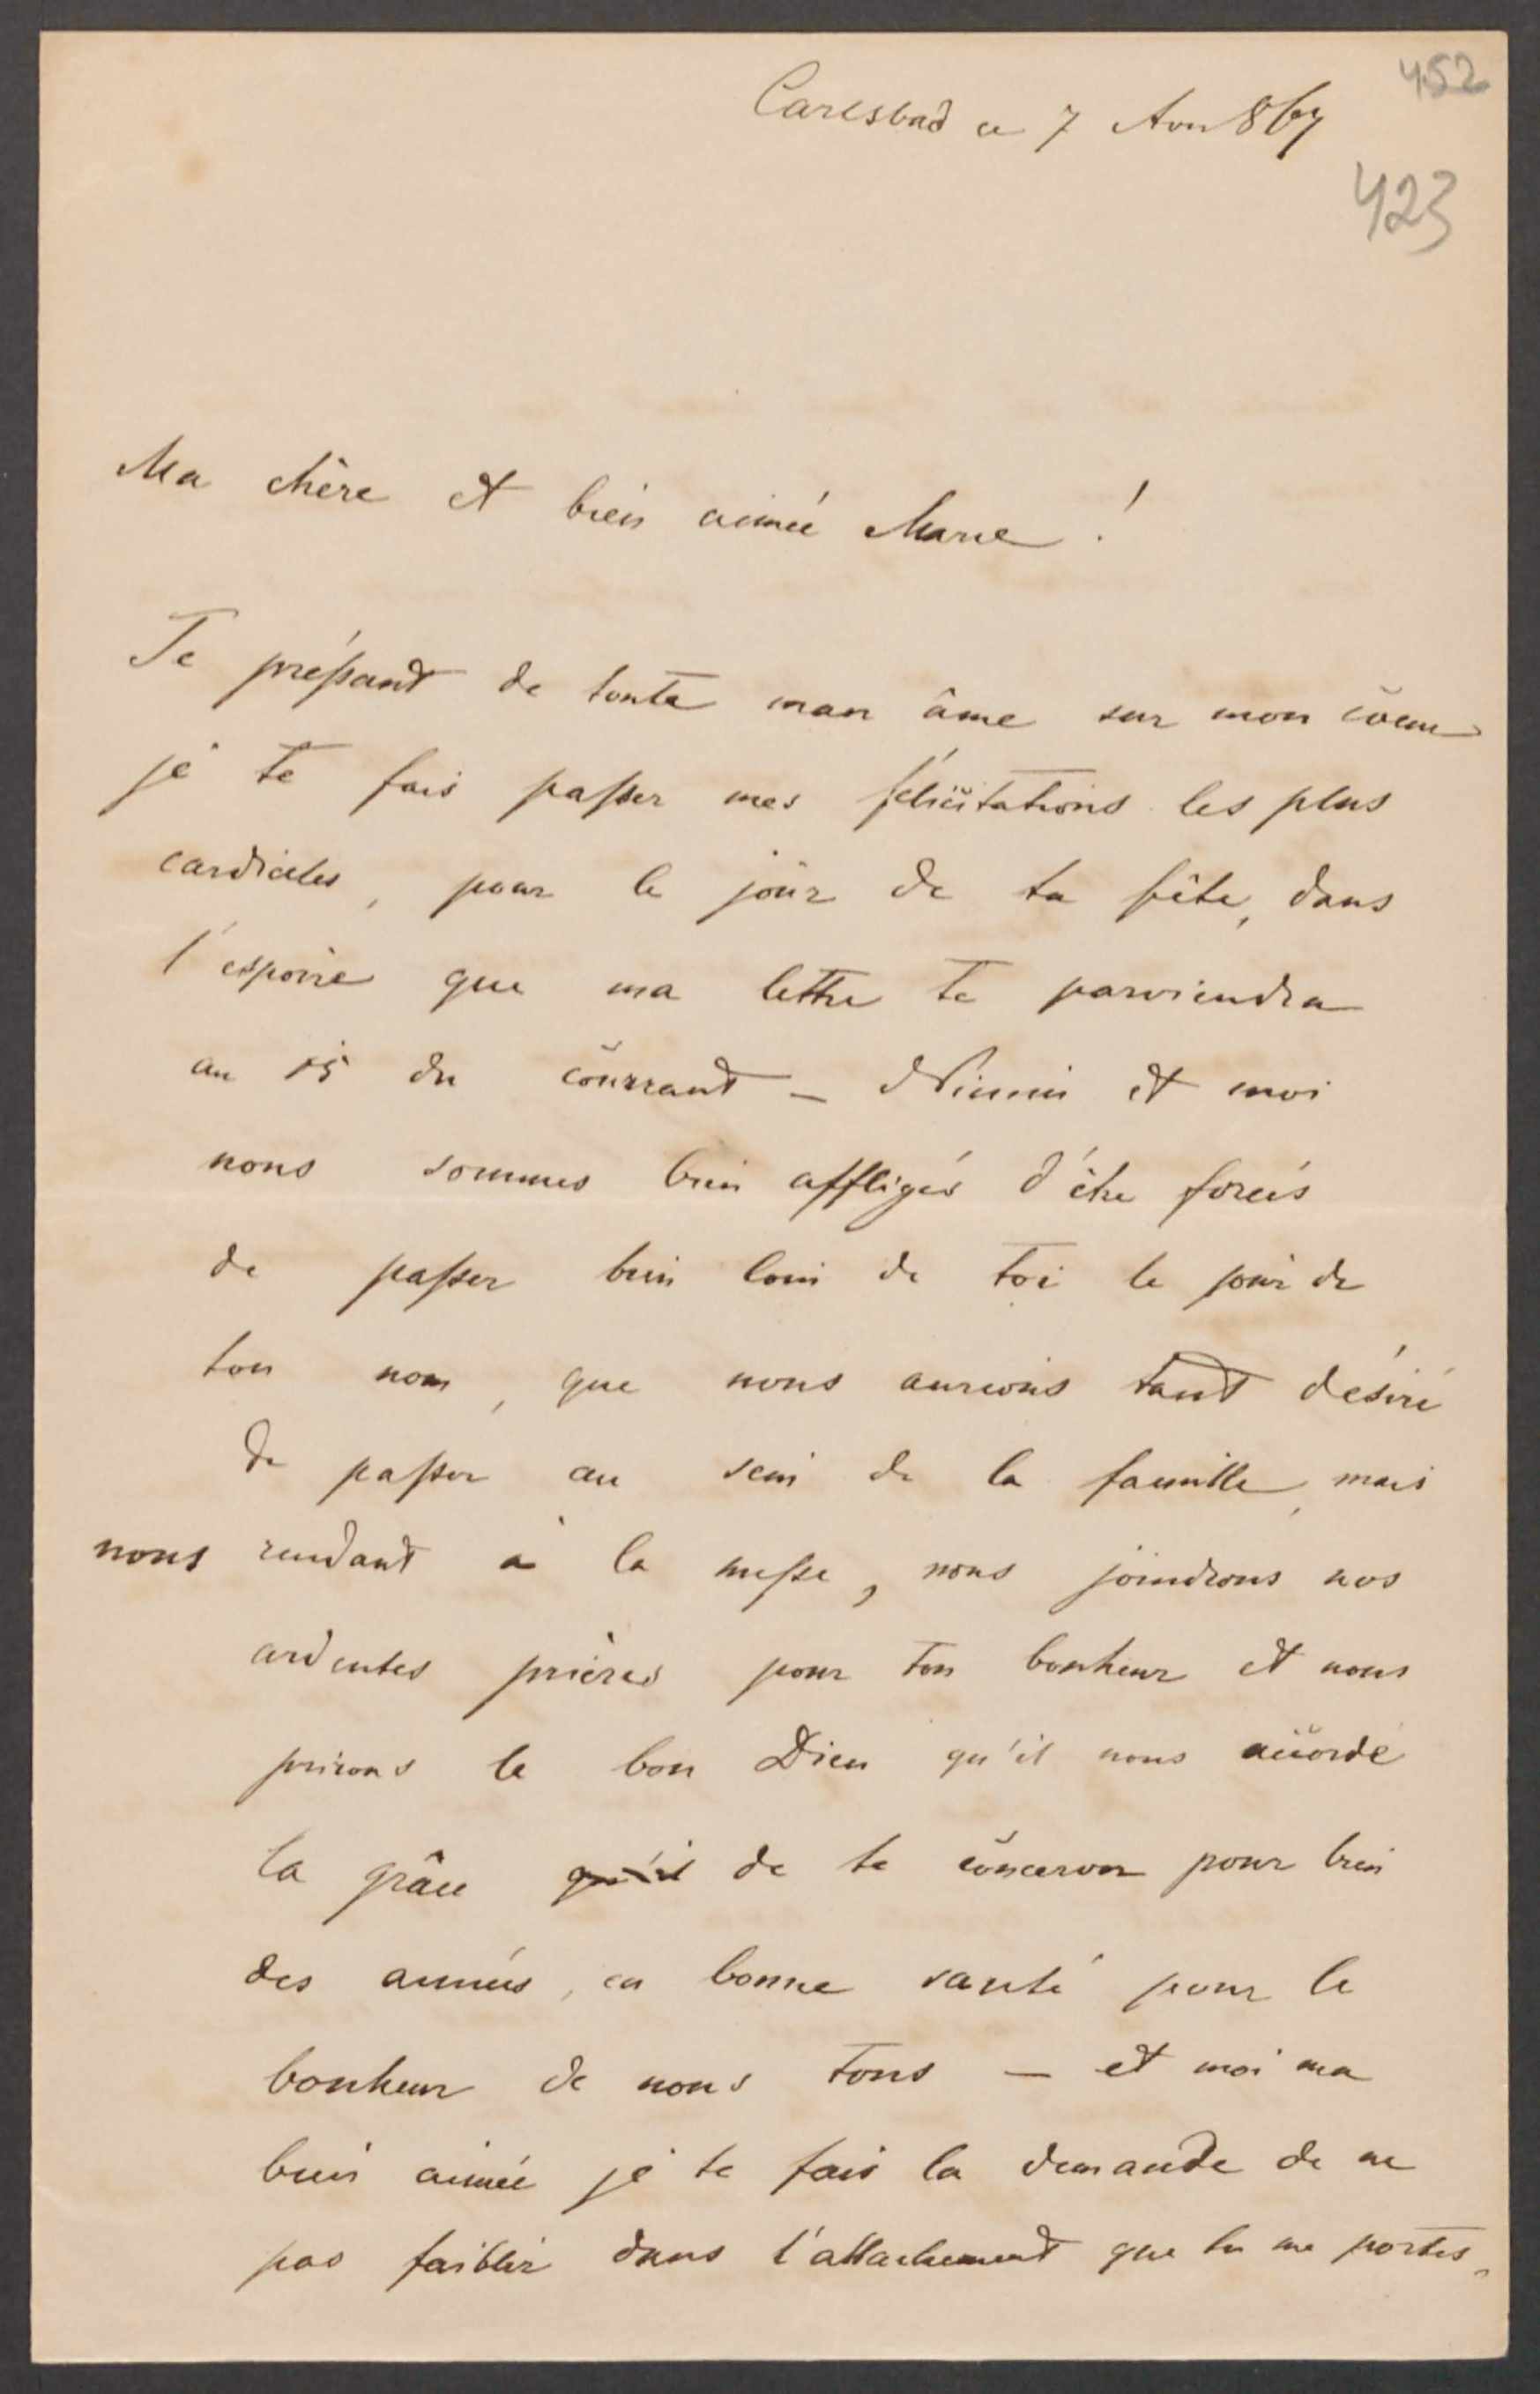 452
Carlsbad ce 7 Aou 867
423
Ma chère et bien aimée Marie !
Te préssant de toute mon âme sur mon coeur
je te fais passer mes félicitations les plus
cordiales, pour le jour de ta fête, dans
l'espoire que ma lettre te parviendra
au 15 du courrant — Ninni et moi
nous sommes bien affligés d'être forcés
de passer bien loin de toi le jour de
ton nom, que nous aurions tant désiré
de passer au sein de la famille, mais
nous rendant à la messe, nous joindrons nos
ardentes prières pour ton bonheur et nous
prirons le bon Dieu qu'il nous accorde
la grâce qu'il de te conserver pour bien
des années, en bonne santé pour le
bonheur de nous tous — et moi ma
bien aimée je te fais la demande de ne
pas faiblir dans l'attachement que tu me portes,